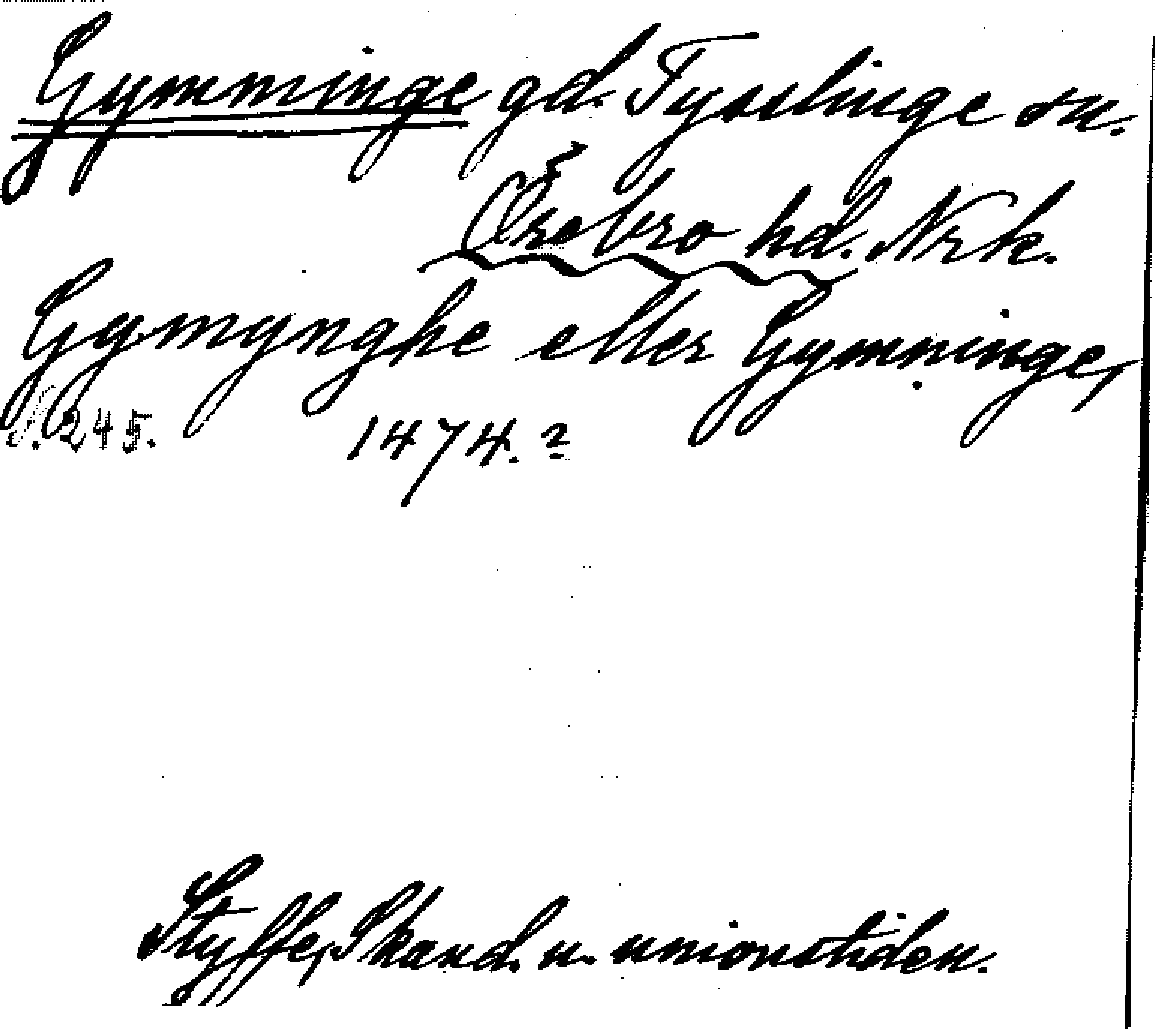 Gymminge gd. Tysslinge sn.
Örebro hd. Nrk.
Gymynghe eller Gymninge,
S. 245. 1474.²
Styffe, Skand. u. unionstiden.